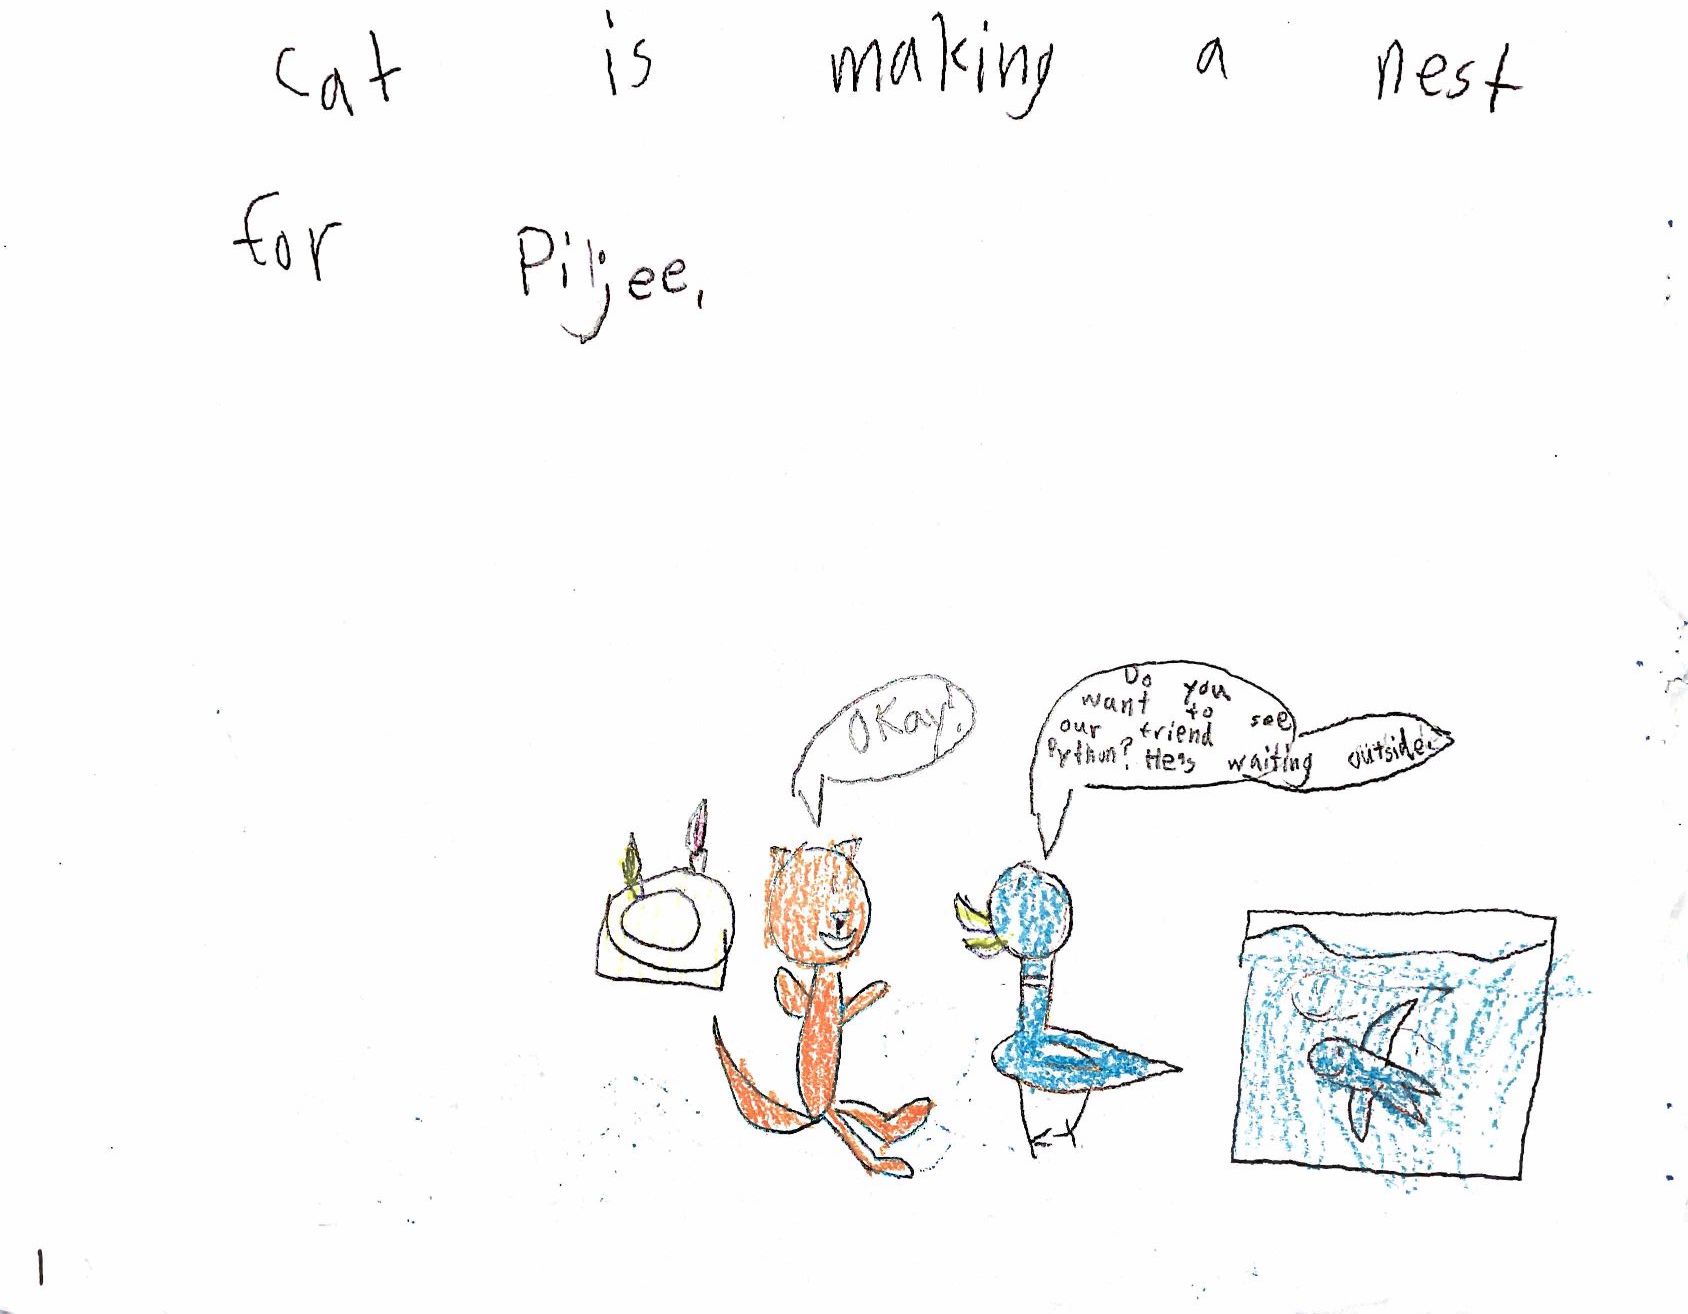 cat is making a nest
for Piljee.
OKay!
Do you
want to see
our friend
Python? He's waiting outside.
1